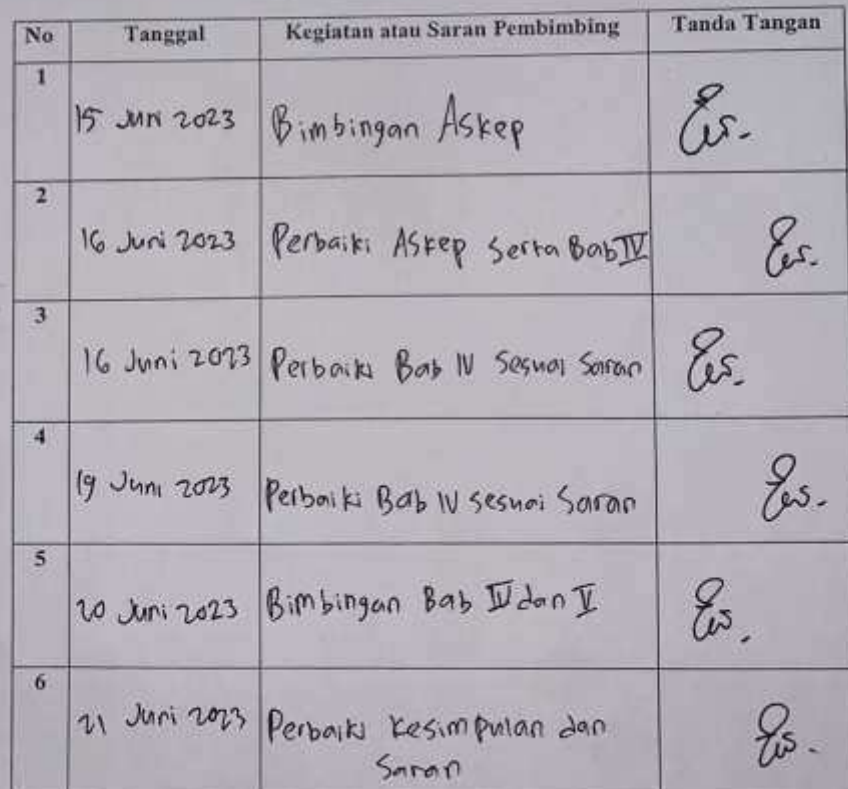 No Tanggal Kegiatan atau Saran Pembimbing Tanda Tangan
1
15 Juni 2023 Bimbingan Askep
2
16 Juni 2023 Perbaiki Askep serta Bab IV
3
16 Juni 2023 Perbaiki Bab IV Sesuai Saran
4
19 Juni 2023 Perbaiki Bab IV sesuai Saran
5
20 Juni 2023 Bimbingan Bab IV dan V
6
21 Juni 2023 Perbaiki Kesimpulan dan
Saran